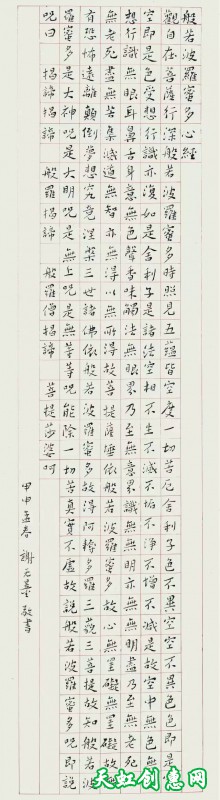 般若波羅蜜多心經
觀自在菩薩行深般若波羅蜜多時照見五蘊皆空度一切苦厄舍利子色不異空空不異色色即是
空即是色受想行識亦復如是舍利子是諸法空相不生不滅不垢不淨不增不減是故空中無色無受
想行識無眼耳鼻舌身意無色聲香味觸法無眼界乃至無意識界無無明亦無無明盡乃至無老死亦
無老死盡無苦集滅道無智亦無得以無所得故菩提薩埵依般若波羅蜜多故心無罣礙無罣礙故無
有恐怖遠離顛倒夢想究竟涅槃三世諸佛依般若波羅蜜多故得阿耨多羅三藐三菩提故知般若波
羅蜜多是大神呪是大明呪是無上呪是無等等呪能除一切苦真實不虛故說般若波羅蜜多呪即說
呪曰 揭諦揭諦 般羅揭諦 般羅僧揭諦 菩提莎婆呵
甲申孟春 謝 敬書
天虹创意网